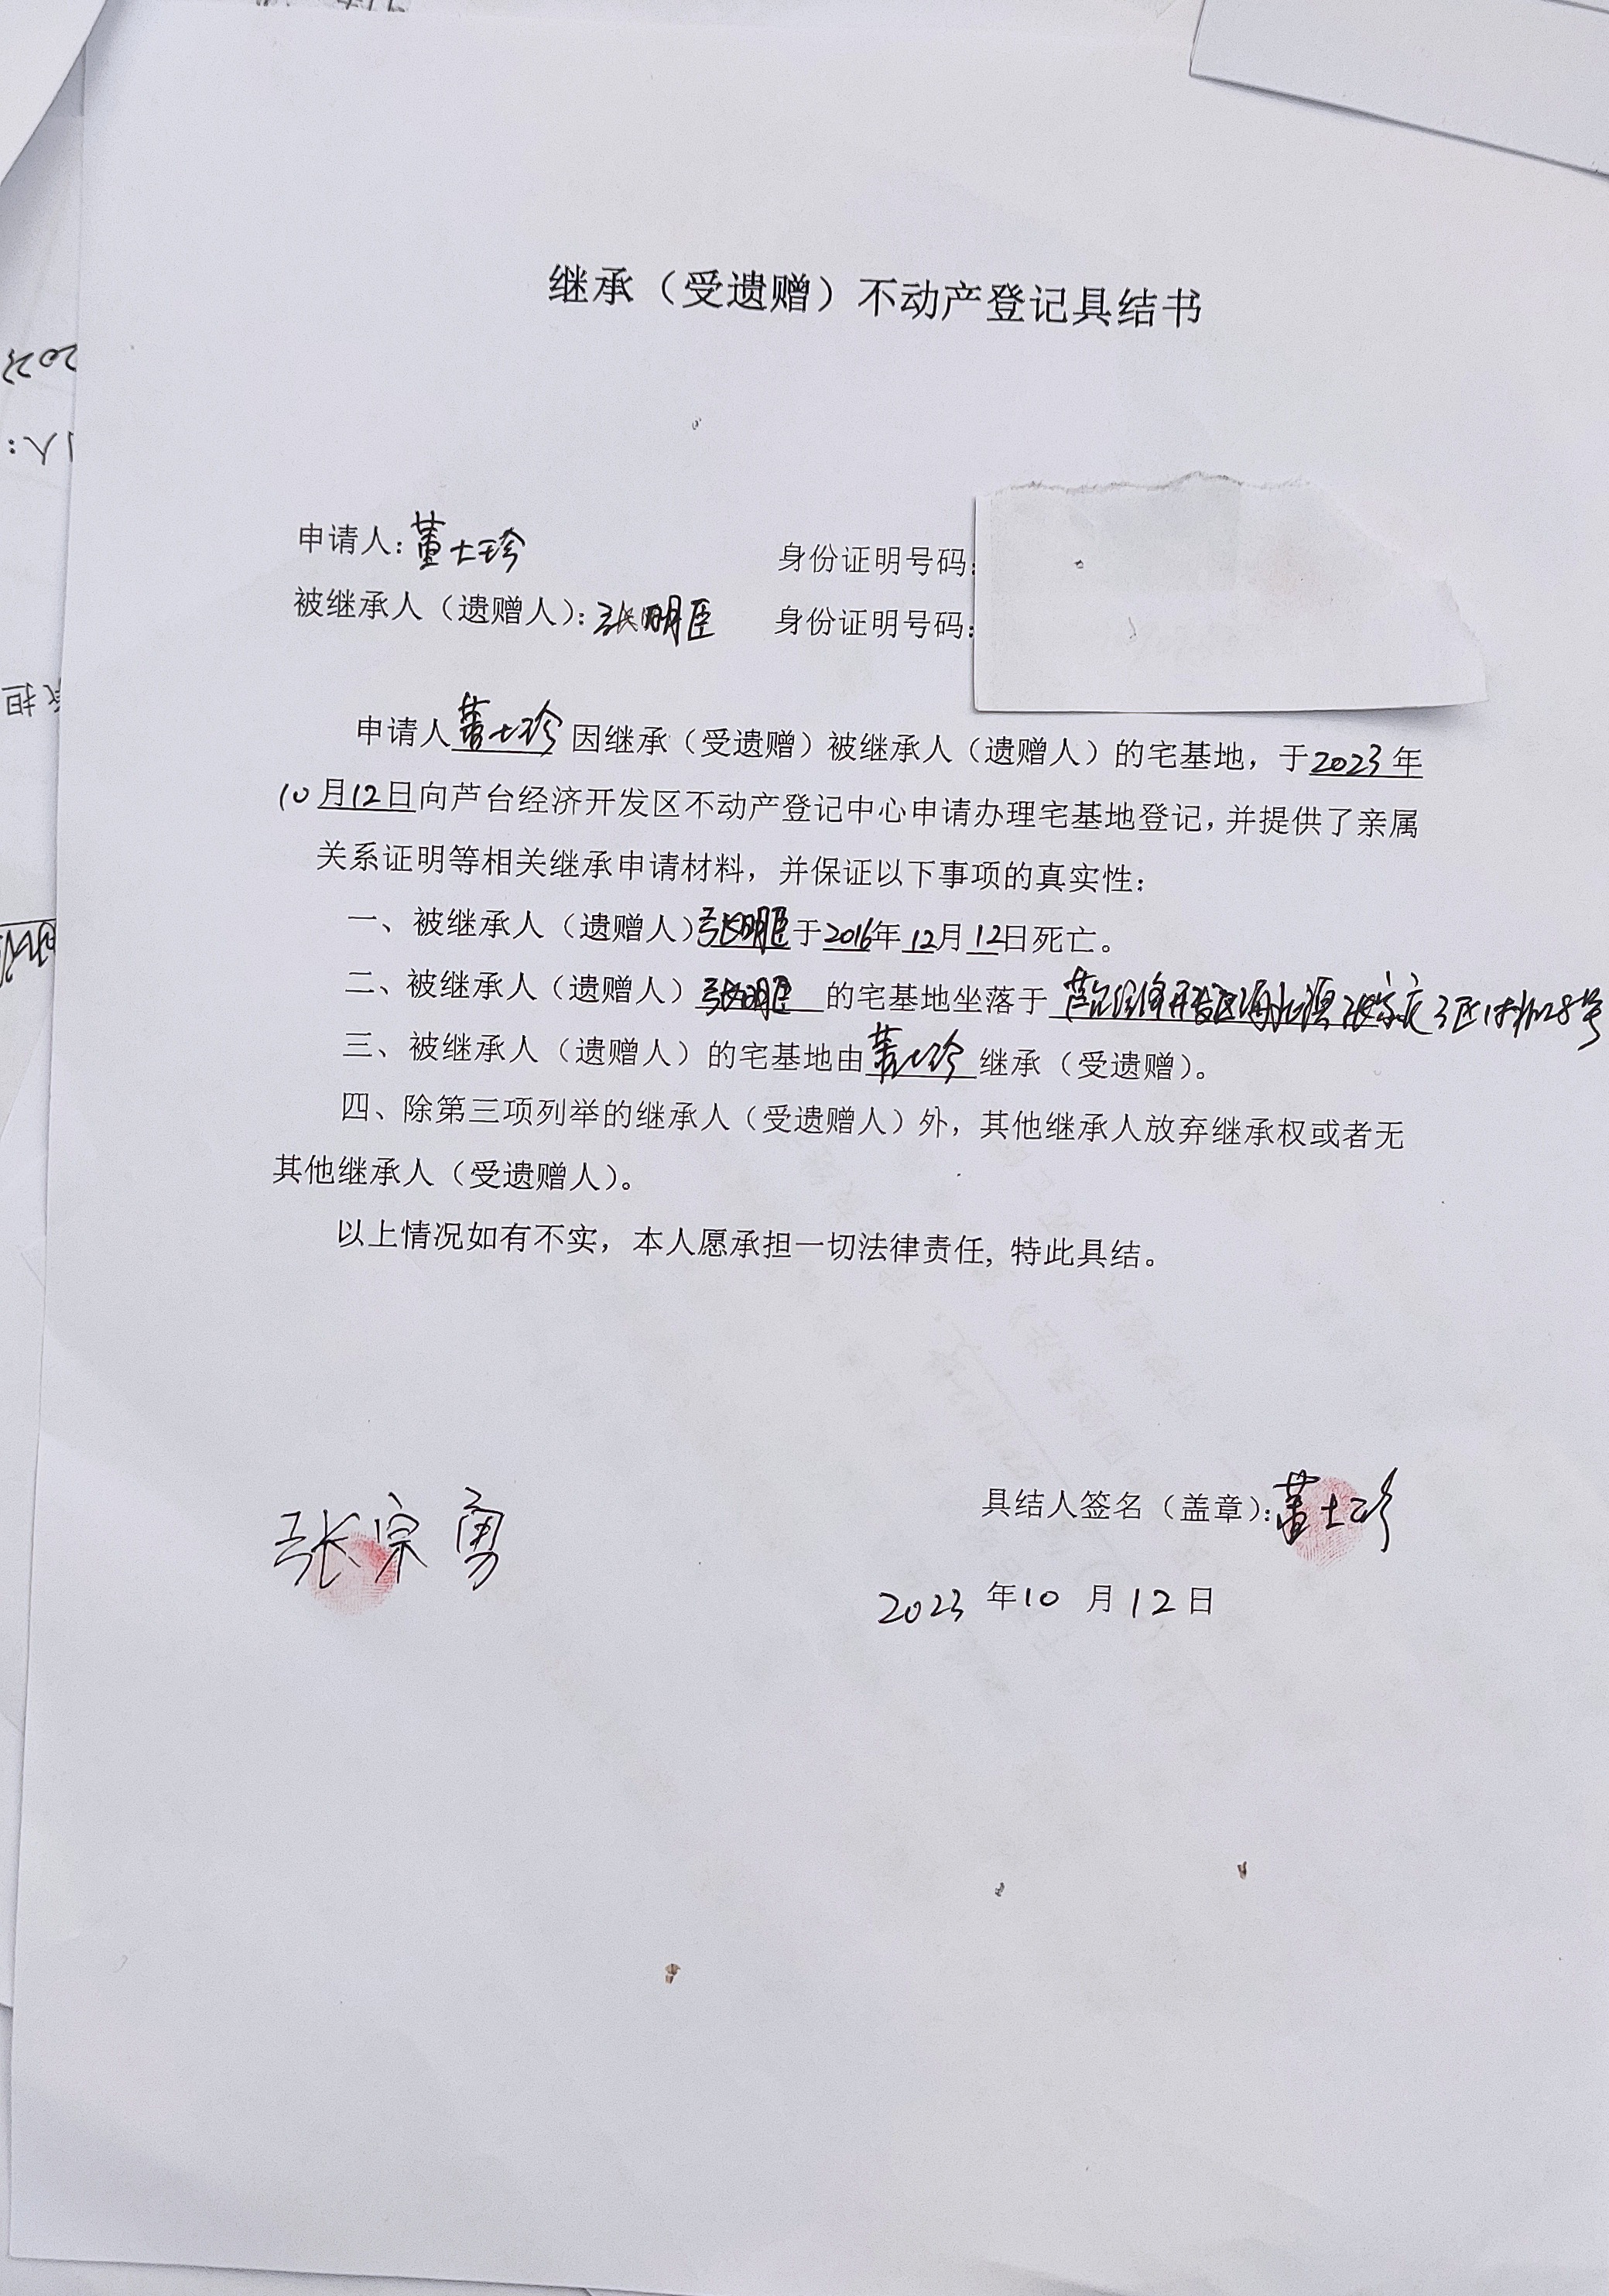 继承（受遗赠）不动产登记具结书
申请人：董士珍 身份证明号码：
被继承人（遗赠人）：张明臣 身份证明号码：
申请人董士珍因继承（受遗赠）被继承人（遗赠人）的宅基地，于2023年
10月12日向芦台经济开发区不动产登记中心申请办理宅基地登记，并提供了亲属
关系证明等相关继承申请材料，并保证以下事项的真实性：
一、被继承人（遗赠人）张明臣于2016年12月12日死亡。
二、被继承人（遗赠人）张明臣的宅基地坐落于芦台经济开发区海北镇张家庄3区1排28号
三、被继承人（遗赠人）的宅基地由董士珍继承（受遗赠）。
四、除第三项列举的继承人（受遗赠人）外，其他继承人放弃继承权或者无
其他继承人（受遗赠人）。
以上情况如有不实，本人愿承担一切法律责任，特此具结。
具结人签名（盖章）：董士珍
张宗勇
2023年10月12日